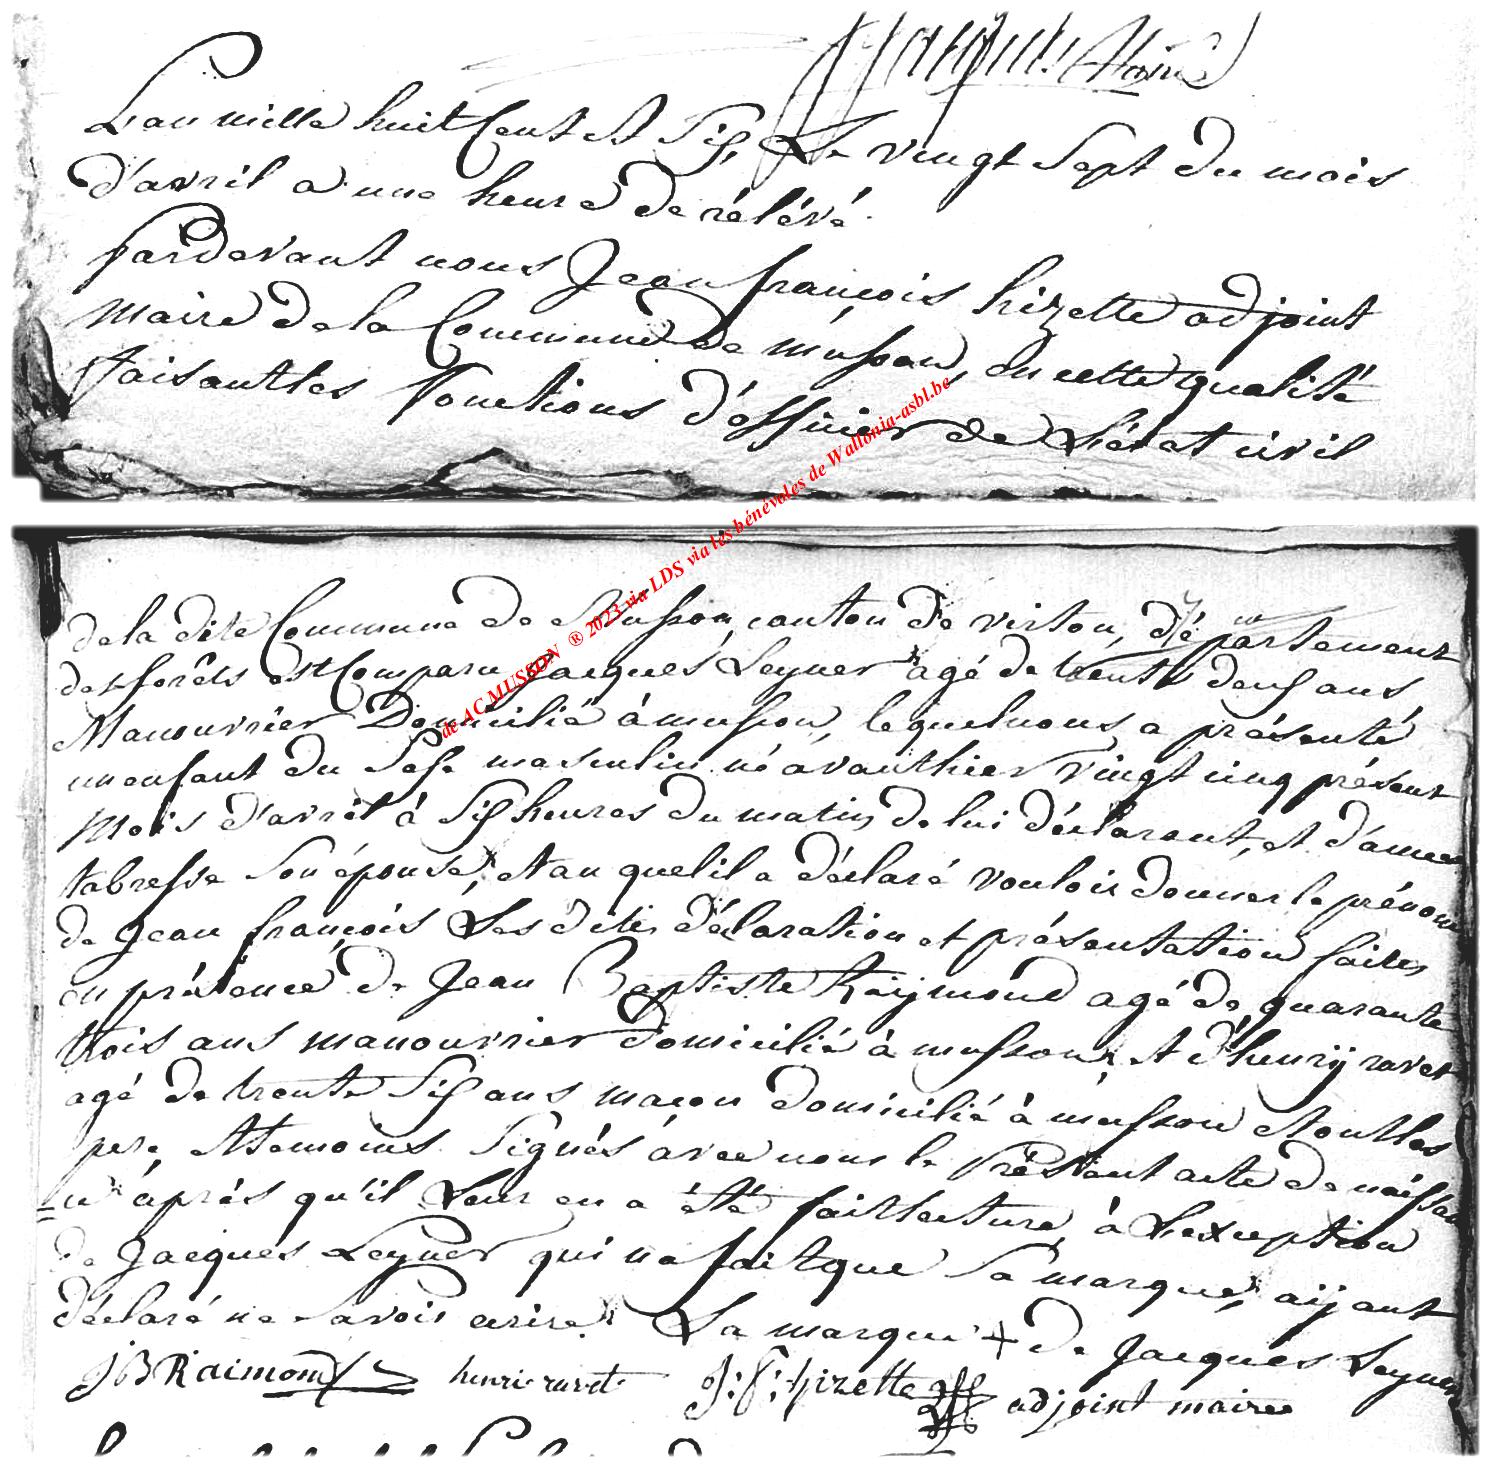 L'an mille huit Cent et Six, Le vingt Sept du mois
d'avril a une heure de rélévé.
Pardevant nous Jean françois hizette adjoint
Maire de la Commune de musson, en cette qualité
faisant les fonctions d'officier de L'état civil
de AC MUSSON ® 2023 via LDS via les bénévoles de Wallonia-asbl.be
de la dite Commune de Musson, canton de virton, département
des forêts est Comparu Jacques Leyner agé de trente deux ans
Manouvrier Domicilié à musson, lequel nous a présenté
un enfant du Sexe masculin né avanthier vingt cinq présent
Mois d'avril à Six heures du matin de lui déclarant, et d'anne
tabresse Son épouse, et au quel il a déclaré vouloir donner le prénom
de Jean françois Les dites déclaration et présentation faites
en présence de Jean Baptiste Raijmond agé de quarante
trois ans manouvrier domicilié à musson, et d'henrij ravet
agé de trente Six ans maçon domicilié à musson et ont les
pere et temoins Signés avec nous le Présent acte de naissan
= ce après qu'il Leur en a été fait lecture, à L'exception
de Jacques Leyner qui n'a fait que Sa marque, aijant
déclaré ne Savoir ecrire. La marque + de Jacques Leyner
JB Raimond henri ravet J: F: hizette adjoint maire